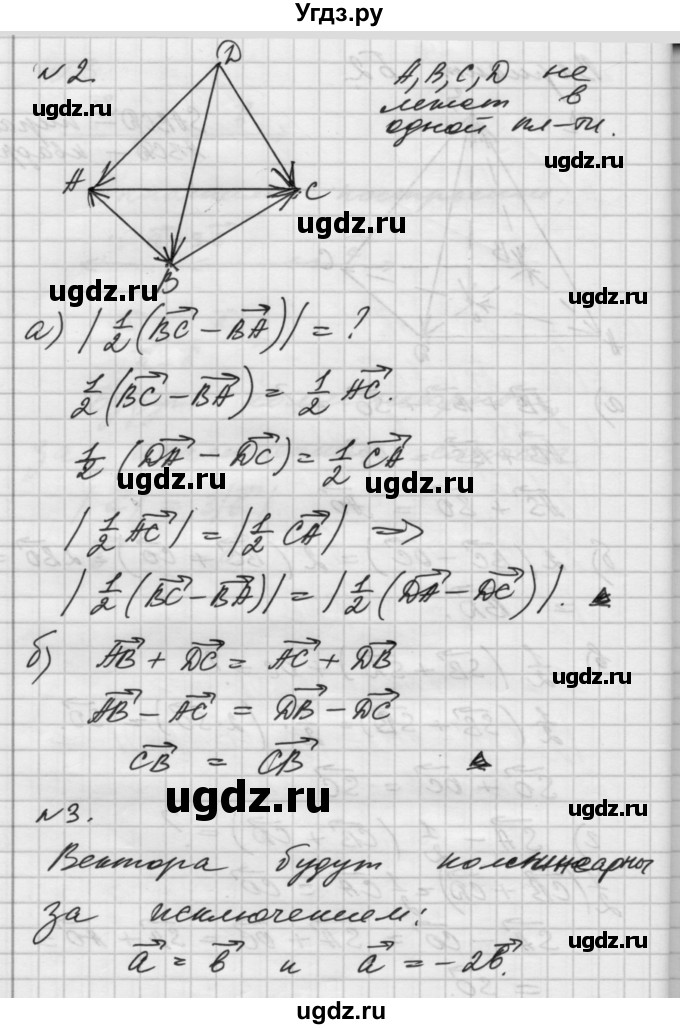 Угдз.ру
№2.
D
A, B, C, D не
лежат в
одной пл-ти.
A
C
B
ugdz.ru
ugdz.ru
ugdz.ru
ugdz.ru
ugdz.ru
а) |1/2(BC→ − BA→)| = ?
1/2(BC→ − BA→) = 1/2 AC→.
1/2 (DA→ − DC→) = 1/2 CA→
ugdz.ru
ugdz.ru
ugdz.ru
|1/2 AC→| = |1/2 CA→| ⇒
|1/2(BC→ − BA→)| = |1/2(DA→ − DC→)|.
б) AB→ + DC→ = AC→ + DB→
ugdz.ru
AB→ − AC→ = DB→ − DC→
CB→ = CB→
ugdz.ru
ugdz.ru
№3.
Вектора будут коллинеарны
за исключением:
ugdz.ru
a→ = b→ и a→ = −2b→.
ugdz.ru
ugdz.ru